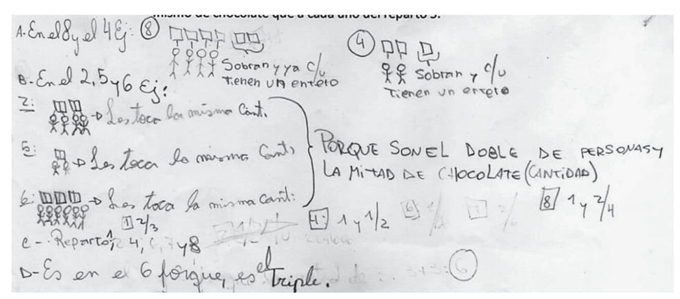 mismo de chocolate que a cada uno del reparto 3.
A. En el 8 y el 4 Ej: 8
Sobran y ya c/u
tienen un entero
4
Sobran y c/u
tienen un entero
B- En el 2, 5 y 6 Ej:
2: → Les toca la misma Cant.
5: → Les toca la misma Cant.
6: → Les toca la misma cant:
PORQUE SON EL DOBLE DE PERSONAS Y
LA MITAD DE CHOCOLATE (CANTIDAD)
1 2/3
4: 1 y 1/2
8 1 y 2/4
C-. Reparto 1, 4, y 8
D- Es en el 6 porque, es el Triple.
6